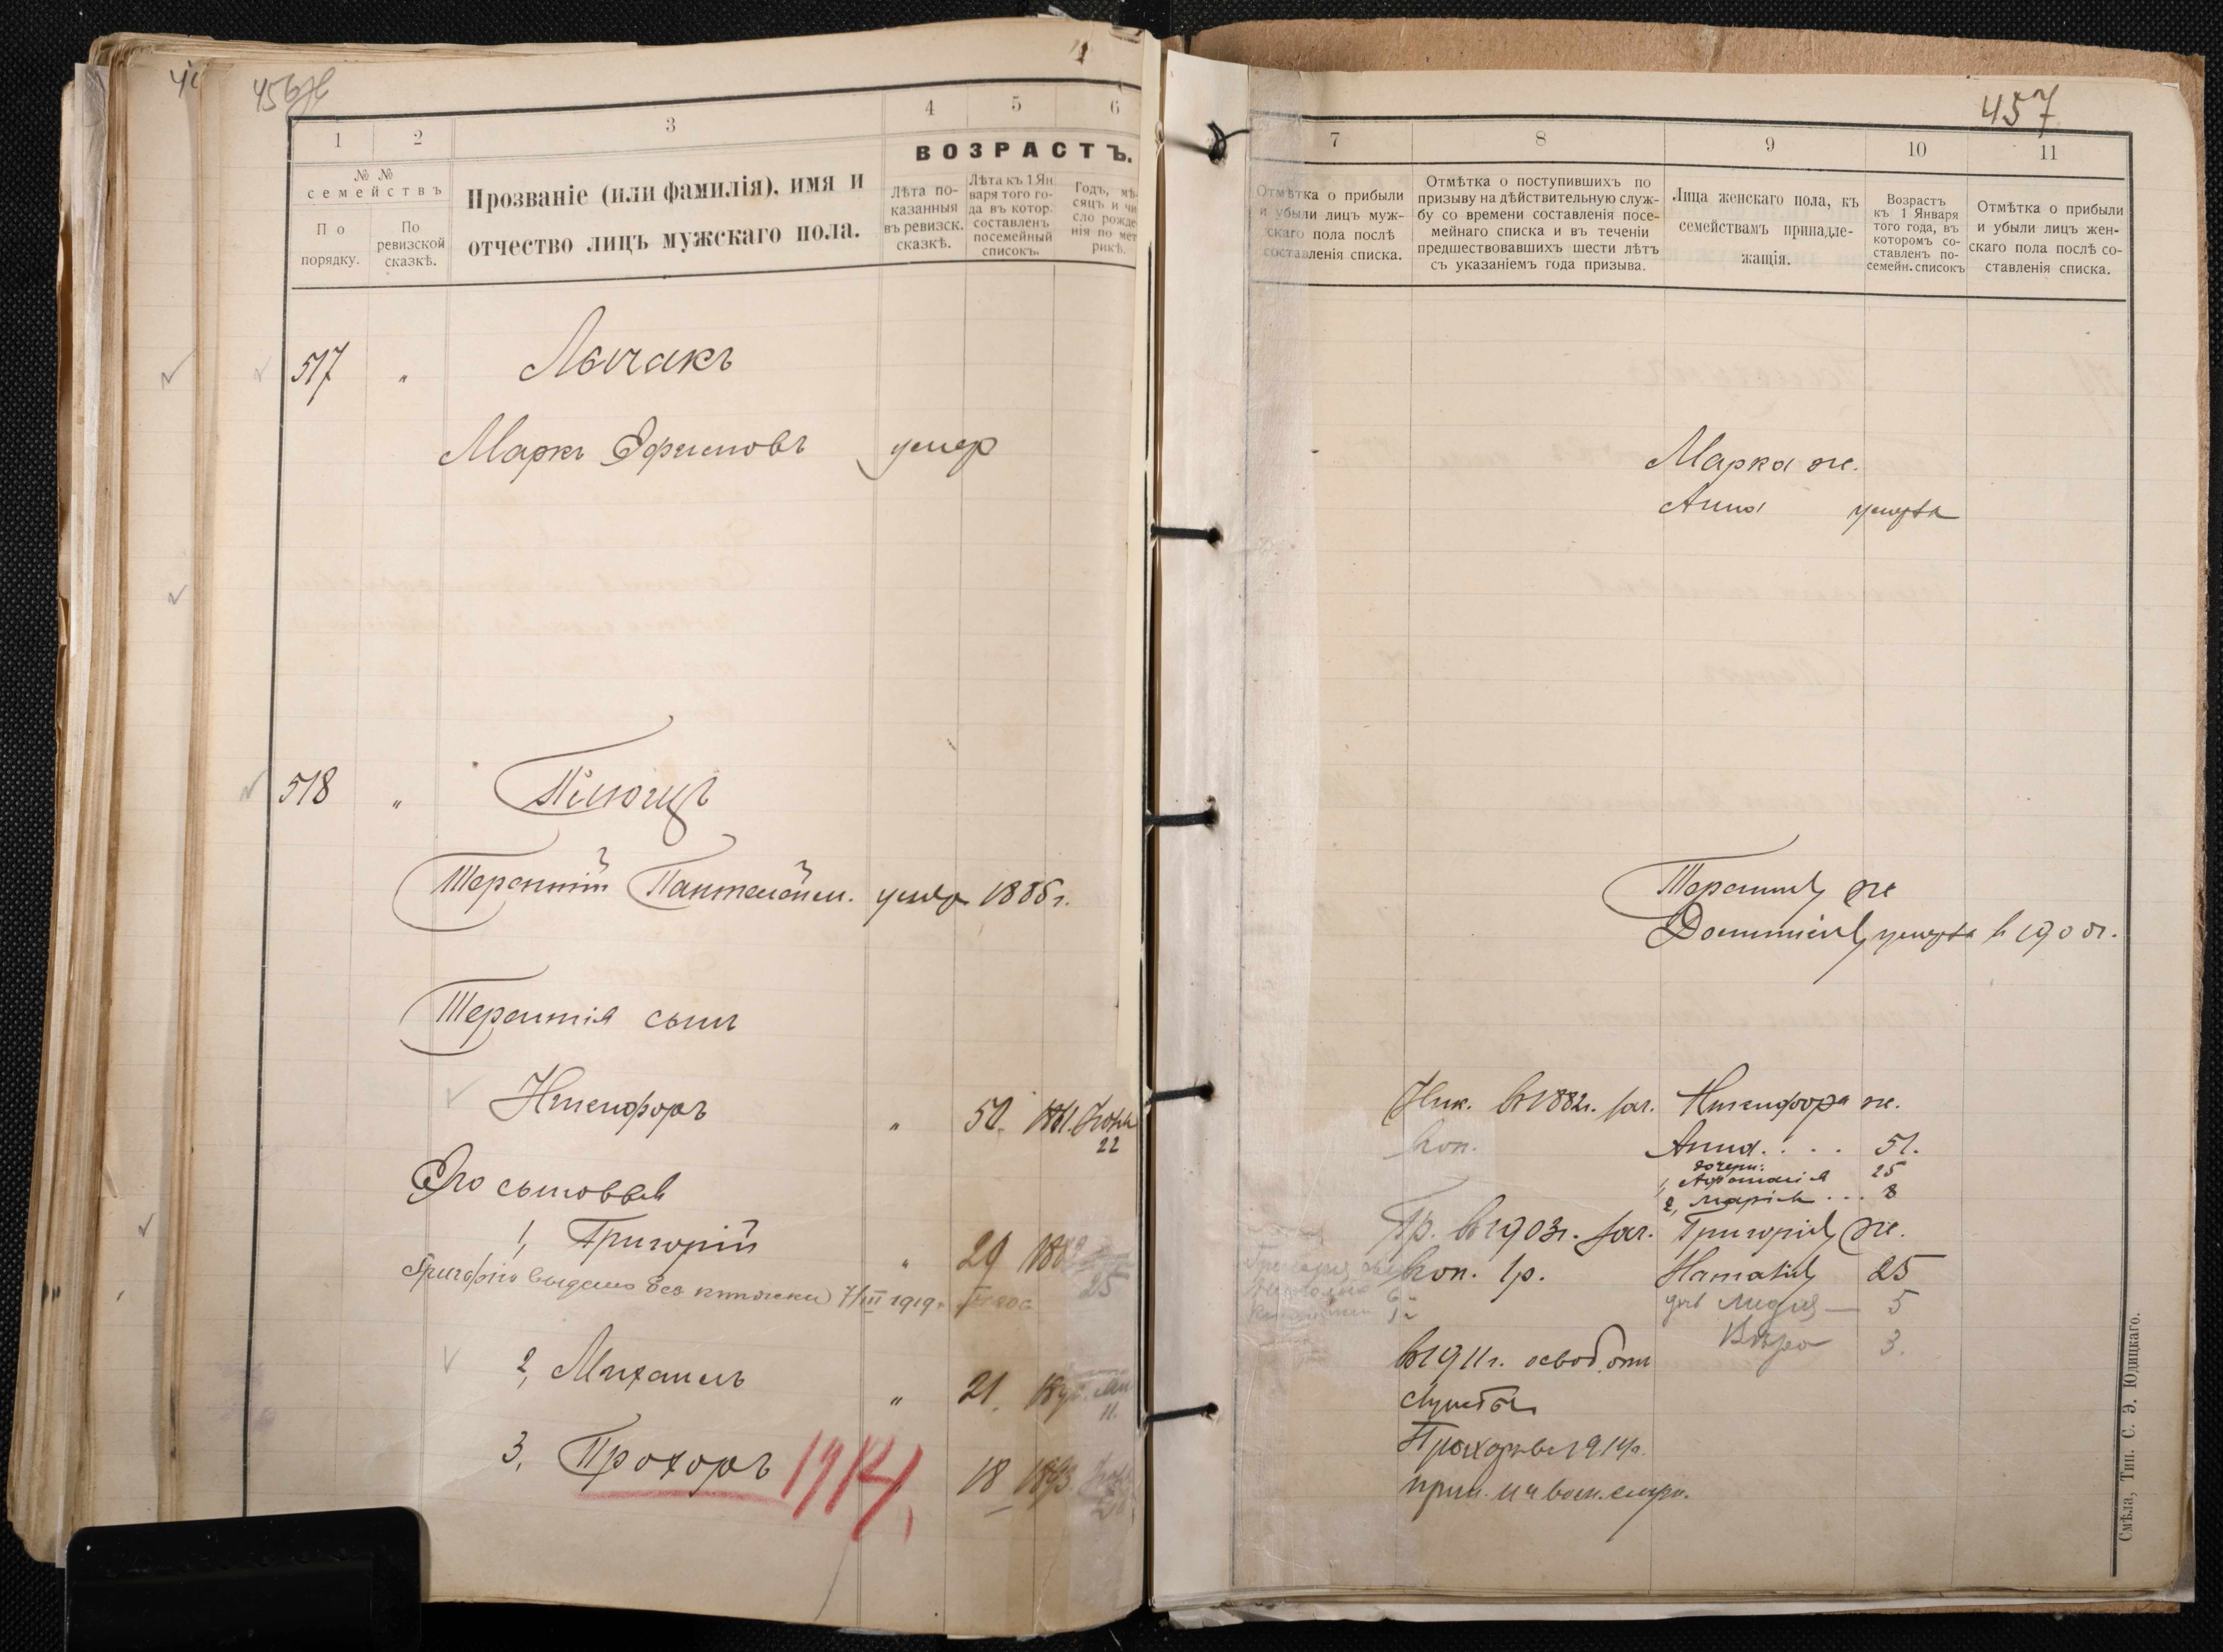 456
457
1
2
3
4
5
6
№ №
семействъ
По
порядку.
По
ревизской
сказкѣ.
Прозваніе (или фамилія), имя и
отчество лицъ мужскаго пола.
ВОЗРАСТЪ.
Лѣта по-
казанныя
въ ревизск.
сказкѣ.
Лѣта къ 1 Ян
варя того го-
да въ котор.
составленъ
посемейный
списокъ.
Годъ, мѣ-
сяцъ и чи
сло рожде
нія по мет
рикѣ.
517 "
Маркъ Ефимовъ умер
518 "
Терентій Пантелейм. умер 1886г.
Терентія сынъ
Никифоръ " 50. 1861.
22
Его сыновья
1, Григорій " 29 188
25
Григорію выдано без книжки 7/III 1919г.
2, Михаилъ " 21.
11.
3, Прохоръ 1914. 18 1893
7
8
9
10
11
Отмѣтка о прибыли
и убыли лицъ муж-
скаго пола послѣ
составленія списка.
Отмѣтка о поступившихъ по
призыву на дѣйствительную служ-
бу со времени составленія посе-
мейнаго списка и въ теченіи
предшествовавшихъ шести лѣтъ
съ указаніемъ года призыва.
Лица женскаго пола, къ
семействамъ принадле-
жащія.
Возрастъ
къ 1 Января
того года, въ
котором со-
ставленъ по-
семейн. списокъ
Отмѣтка о прибыли
и убыли лицъ жен-
скаго пола послѣ со-
ставленія списка.
Марка ж.
Анна умерла
Терентія ж
умерла в 1900г.
Ник. въ 1882г. зач. Никифора ж.
Анна . . . . 51.
дочери:
1, Афанасія 25
2, Марія . . . 8
Гр. въ 1903г. зач. Григорія ж.
Наталія 25
Лидія — 5
Вѣра 3.
въ 1911г. освоб. отъ
службы
Прохоръ въ 1914г.
прин. на воен. службу.
Смѣла, Тип. С. Э. Юдицкаго.